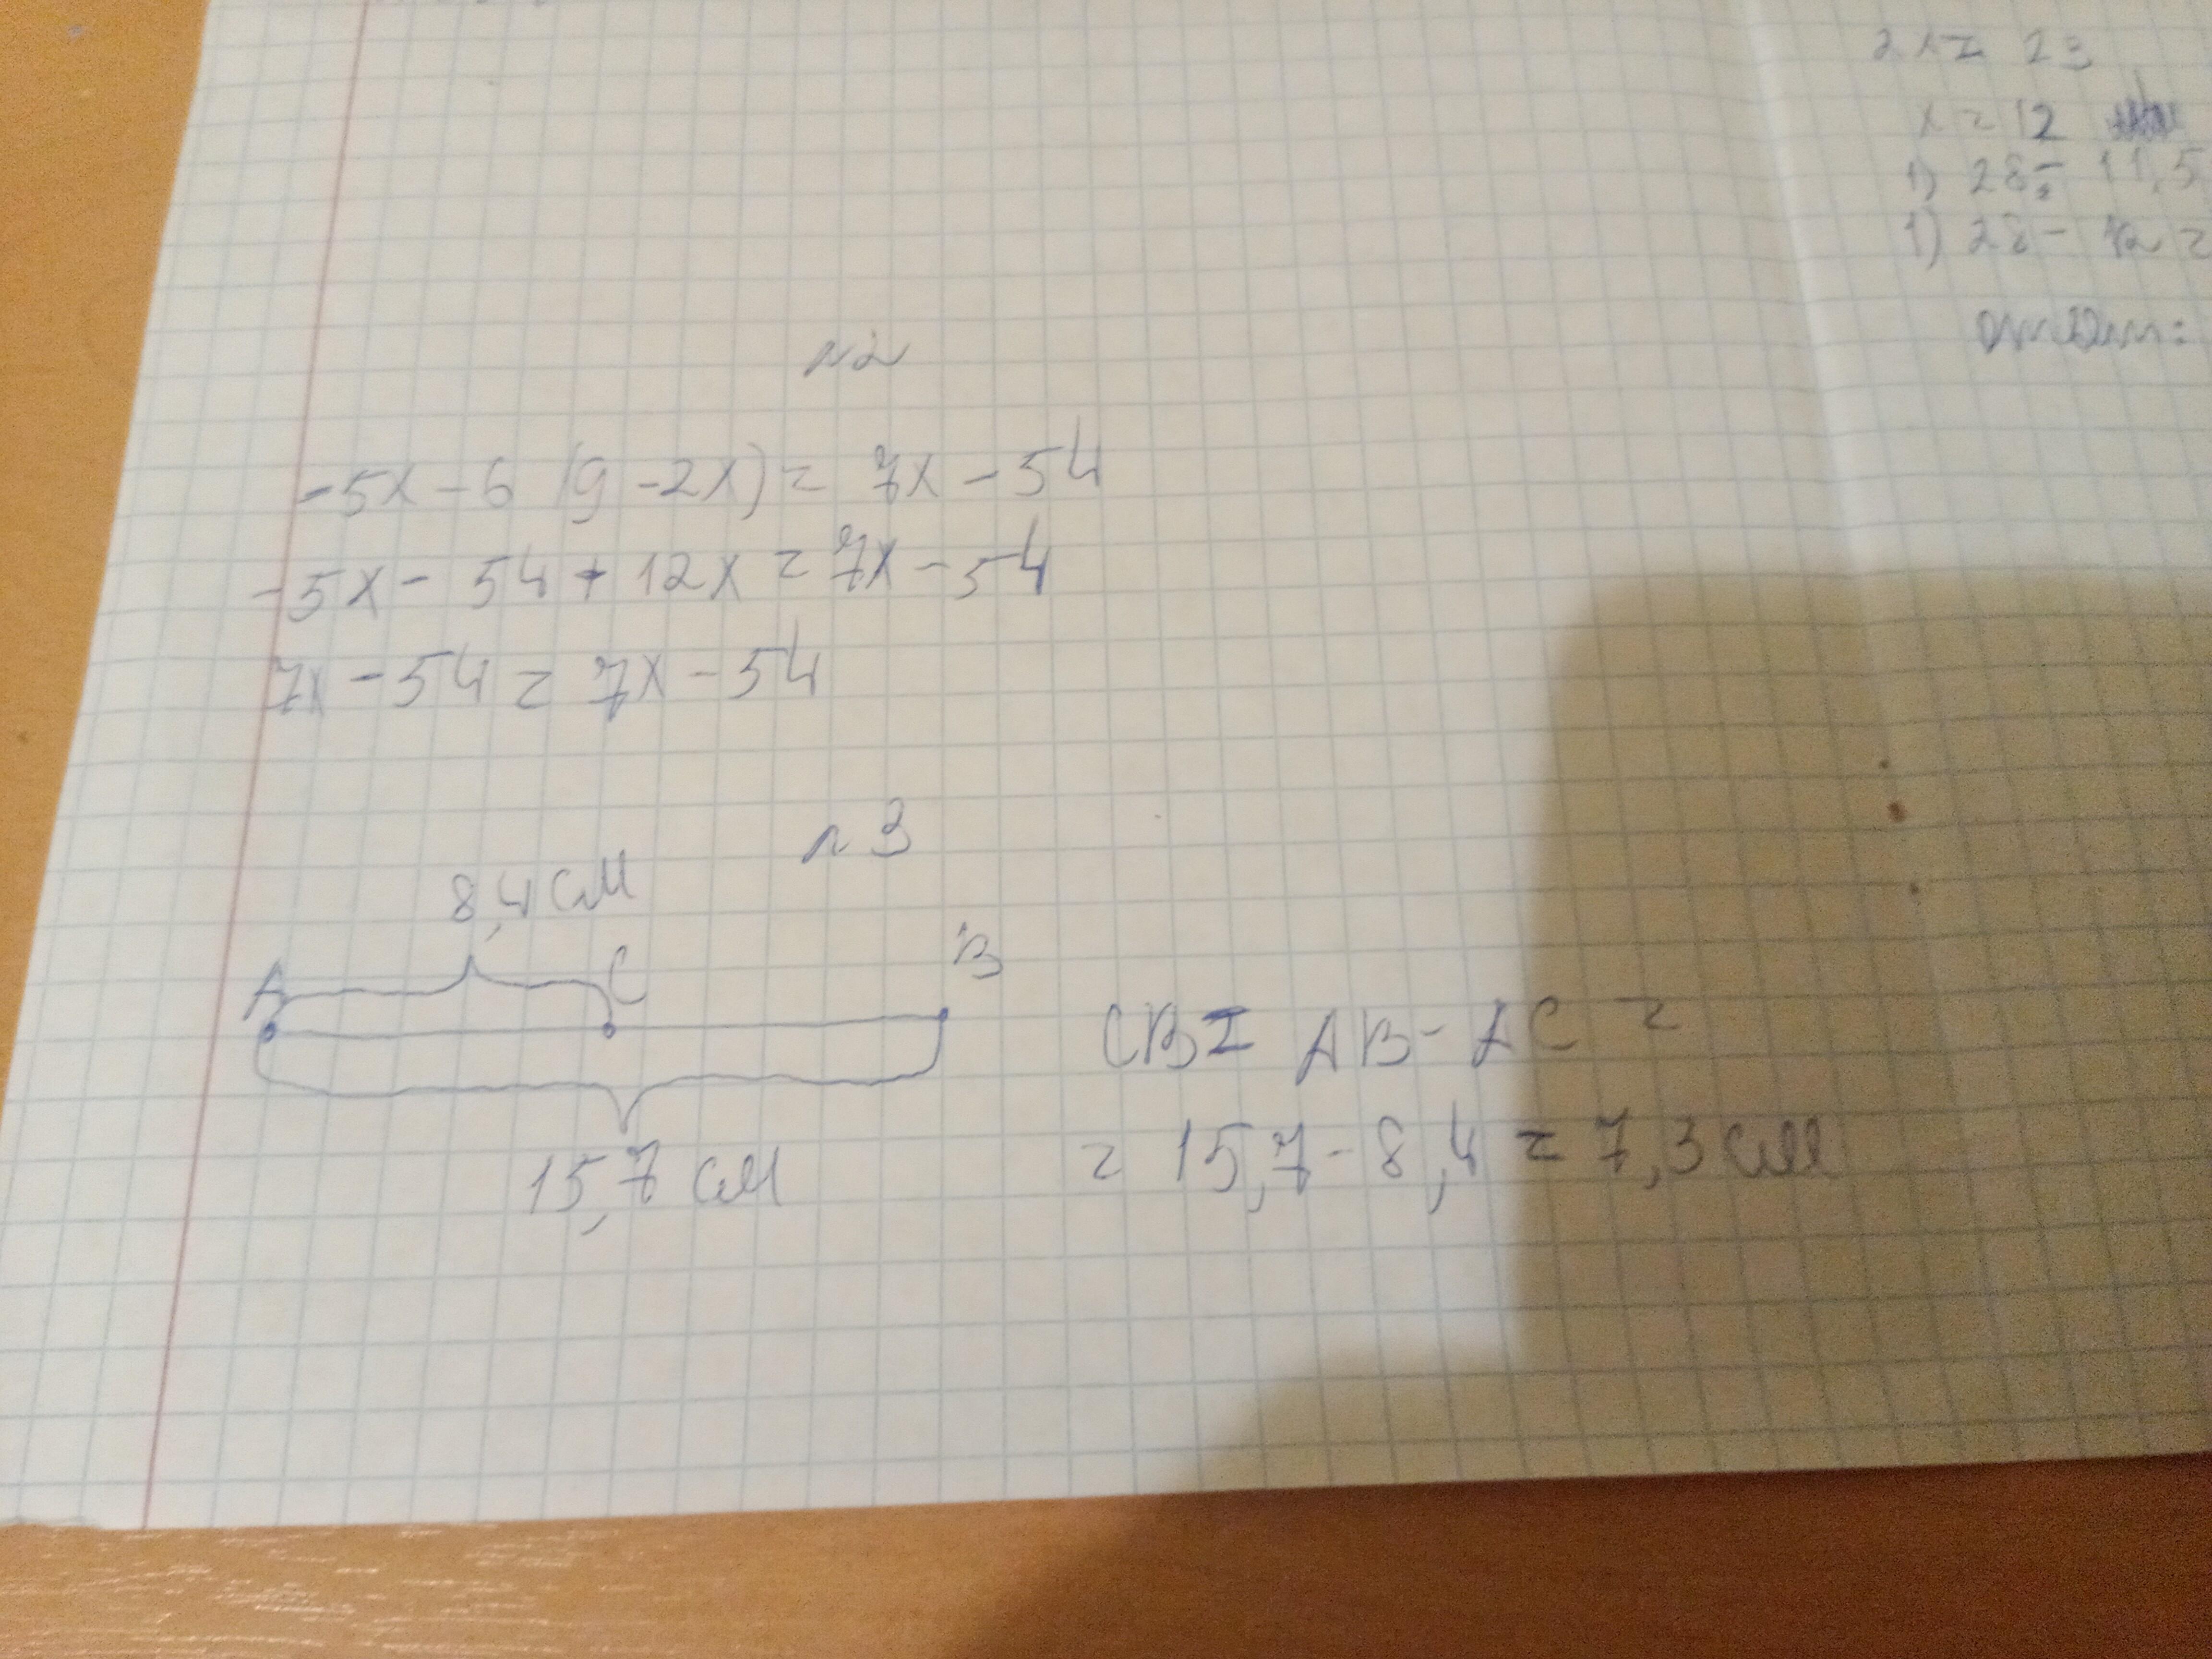 2x = 23
x = 12
1) 28 - 11,5
1) 28 - 12 =
Ответ:
№2
-5x - 6 (9 - 2x) = 7x - 54
-5x - 54 + 12x = 7x - 54
7x - 54 = 7x - 54
№3
8,4 см
A C B
15,7 см
CB = AB - AC =
= 15,7 - 8,4 = 7,3 см